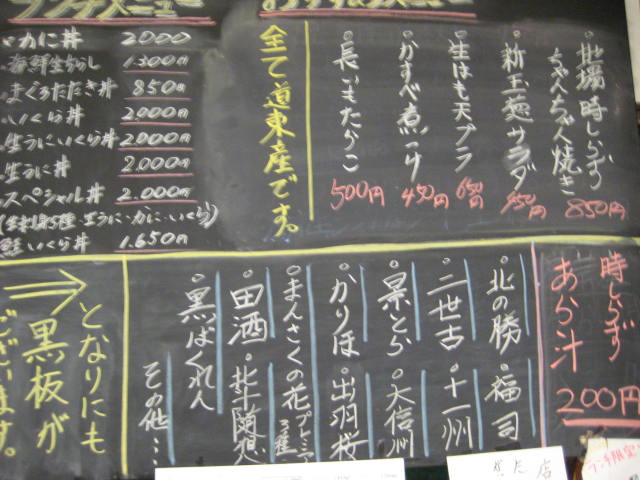 ランチメニュー
かに丼 2000
海鮮生ちらし 1300円
まぐろたたき丼 850円
いくら丼 2000円
生うにいくら丼 2000円
生うに丼 2.000円
スペシャル丼 2.000円
生うに・かに・いくら)
鮭いくら丼 1.650円
おすすめメニュー
地場時しらず
ちゃんちゃん焼き 850円
新玉葱サラダ
生はも天プラ
かすべ煮つけ 450円
長いもたらこ 500円
全て道東産です。
時しらず
あら汁
200円
北の勝 ・福司
二世古 ・十一州
景とら ・大信州
かりほ ・出羽桜
まんさくの花プレミア3種
田酒 ・北斗随想
黒ばくれん
その他…
となりにも
黒板が
ございます。
店
ランチ限定